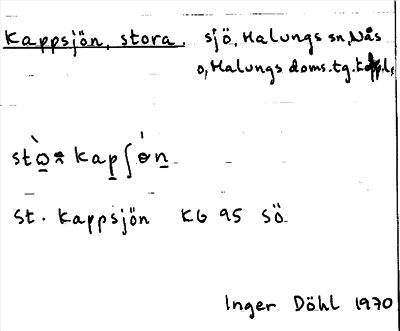 Kappsjön, stora, sjö, Malungs sn, Nås
o, Malungs doms. tg. Koppl.
kapʃɵn
St. Kappsjön KG 95 SÖ
Inger Döhl 1970